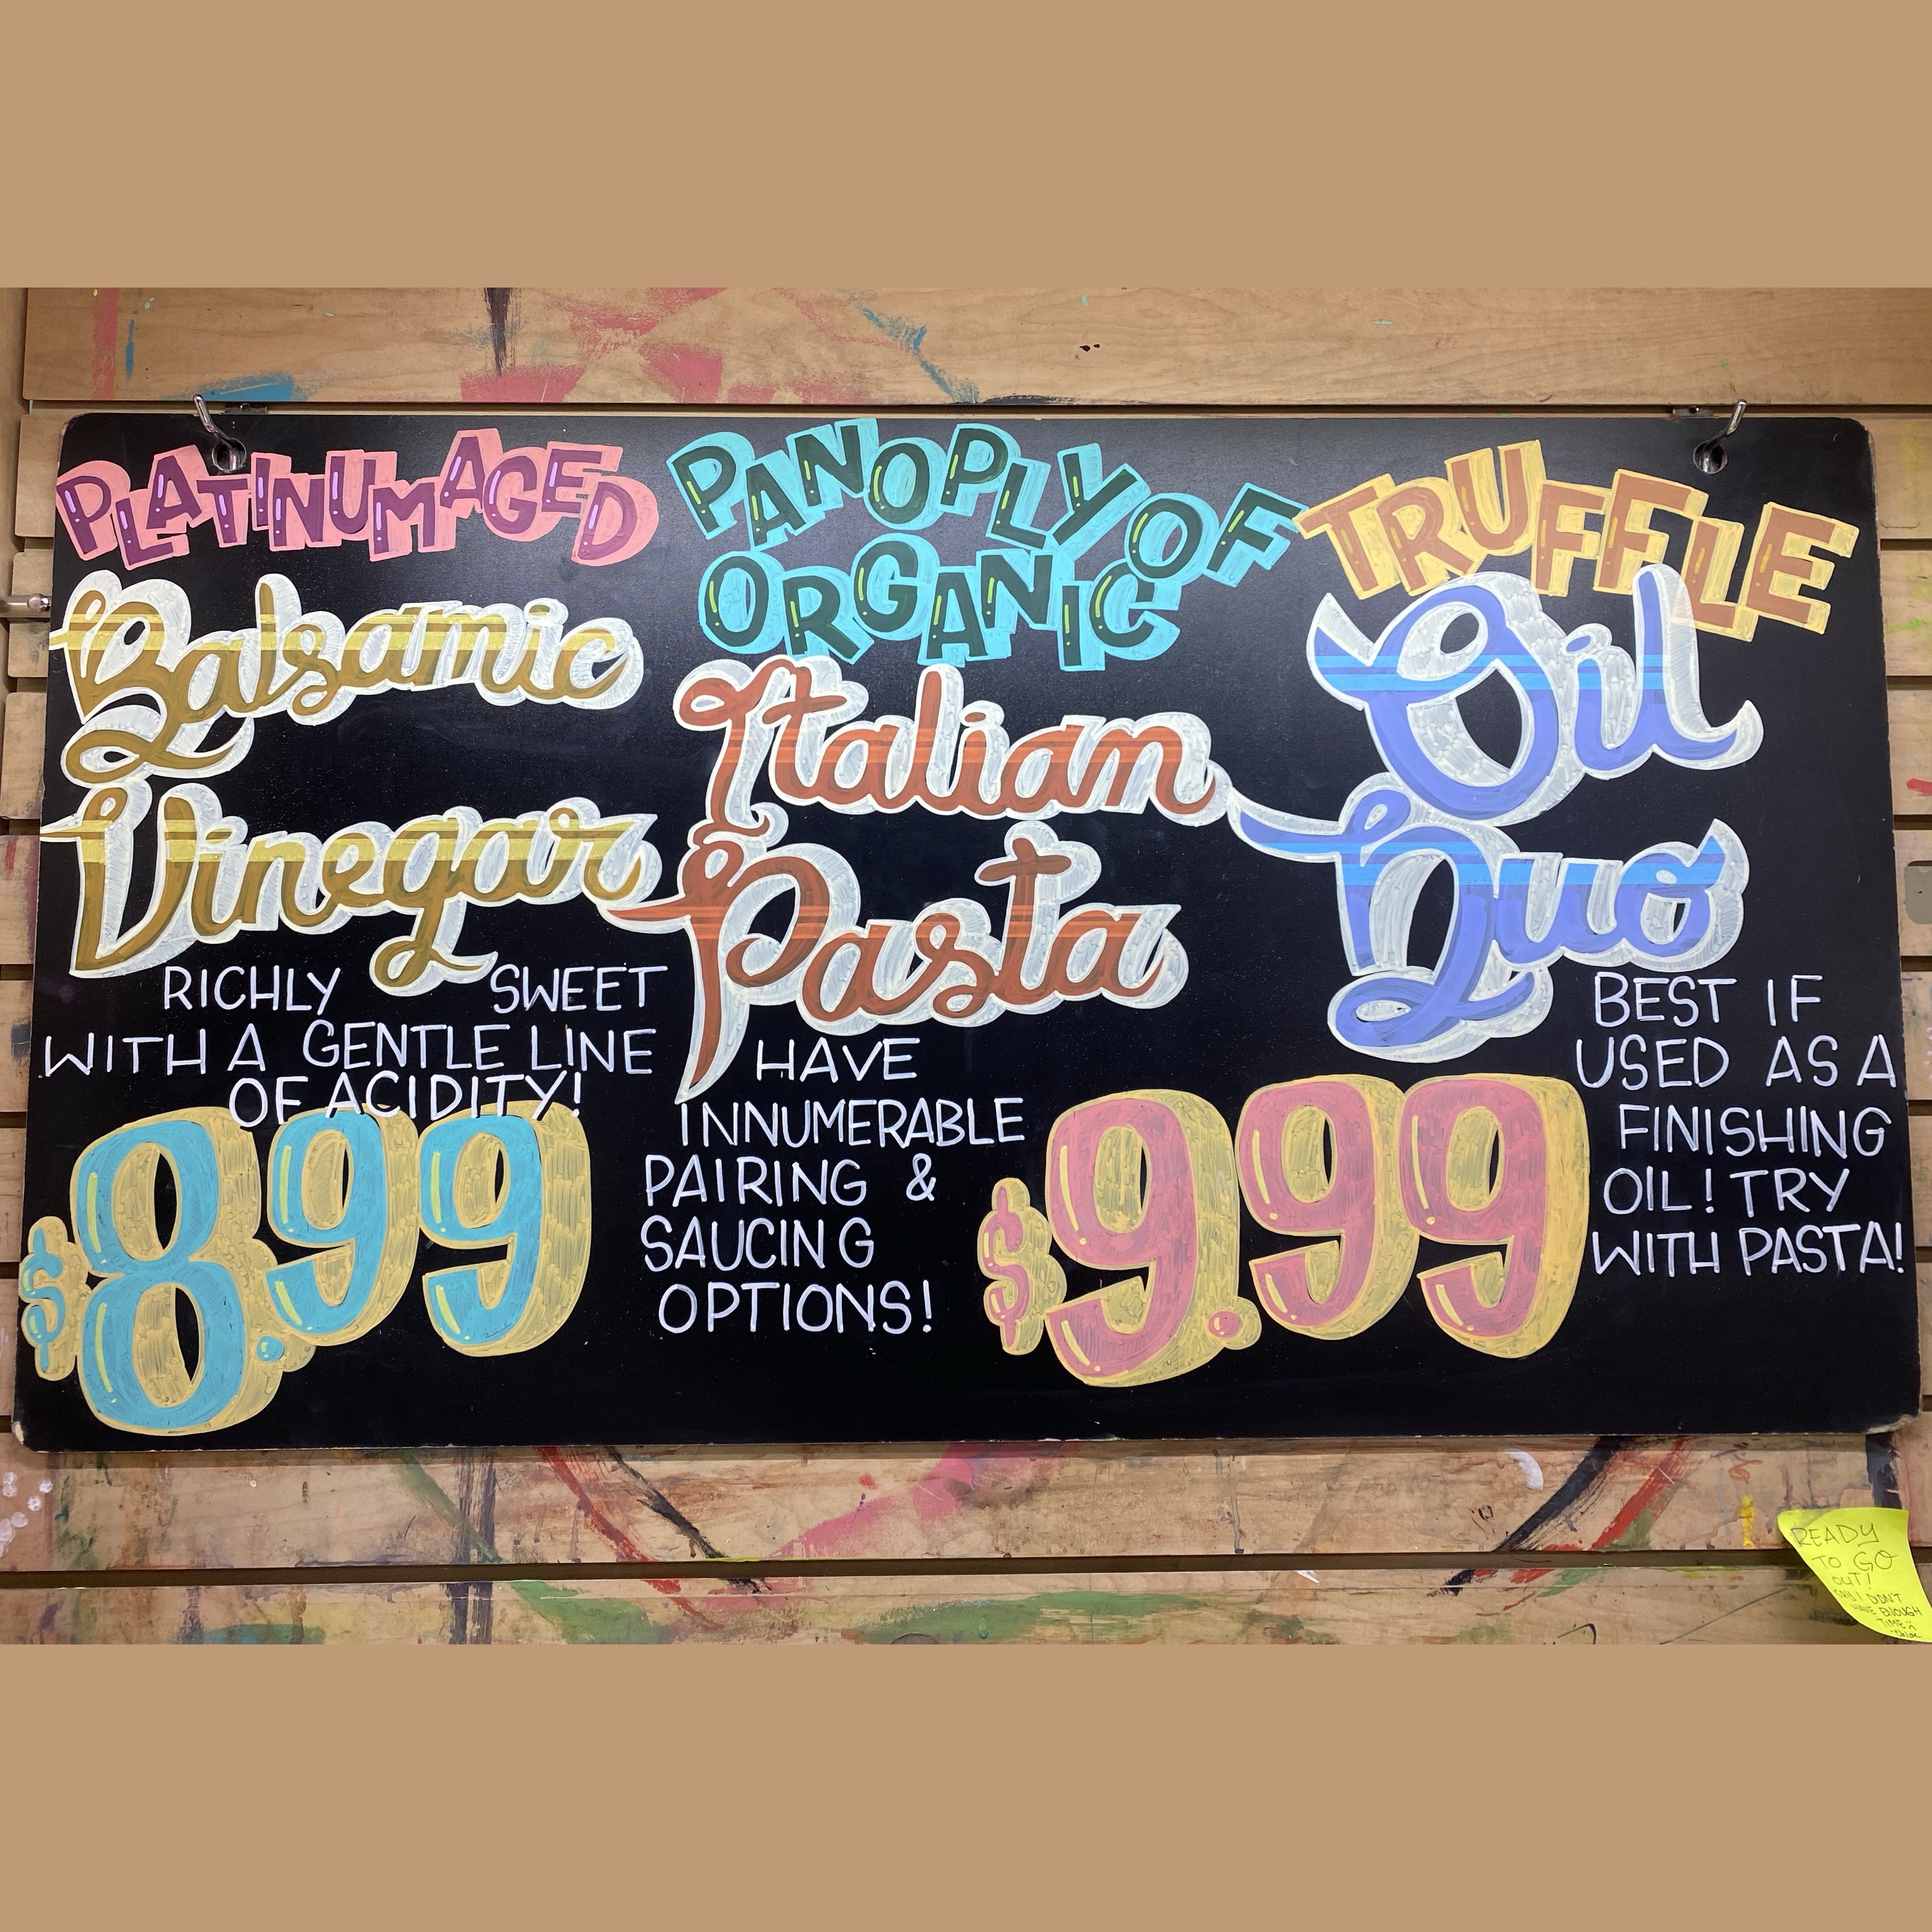 PLATINUM AGED
Balsamic
Vinegar
RICHLY SWEET
WITH A GENTLE LINE
OF ACIDITY!
$8.99
PANOPLY OF
ORGANIC
Italian
Pasta
HAVE
INNUMERABLE
PAIRING &
SAUCING
OPTIONS!
$9.99
TRUFFLE
Oil
Duo
BEST IF
USED AS A
FINISHING
OIL! TRY
WITH PASTA!
READY
TO GO
OUT!
I DIDN'T
HAVE ENOUGH
TIME